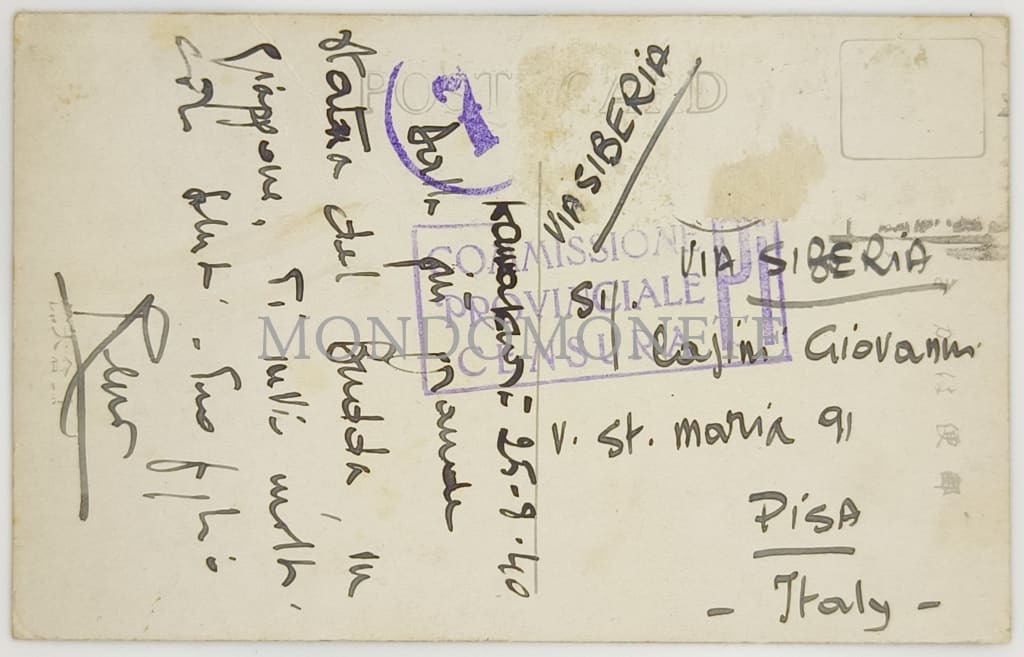 POST CARD
VIA SIBERIA
Kamakura - 25-9-40
Dalla più grande
statua del Budda, in
Giappone, Ti invio molti
cari saluti. Tuo figlio
COMMISSIONE
PROVINCIALE
CENSURA
PI
VIA SIBERIA
Sig.
Giovanni
V. St. Maria 91
PISA
- Italy -
MONDOMONETE